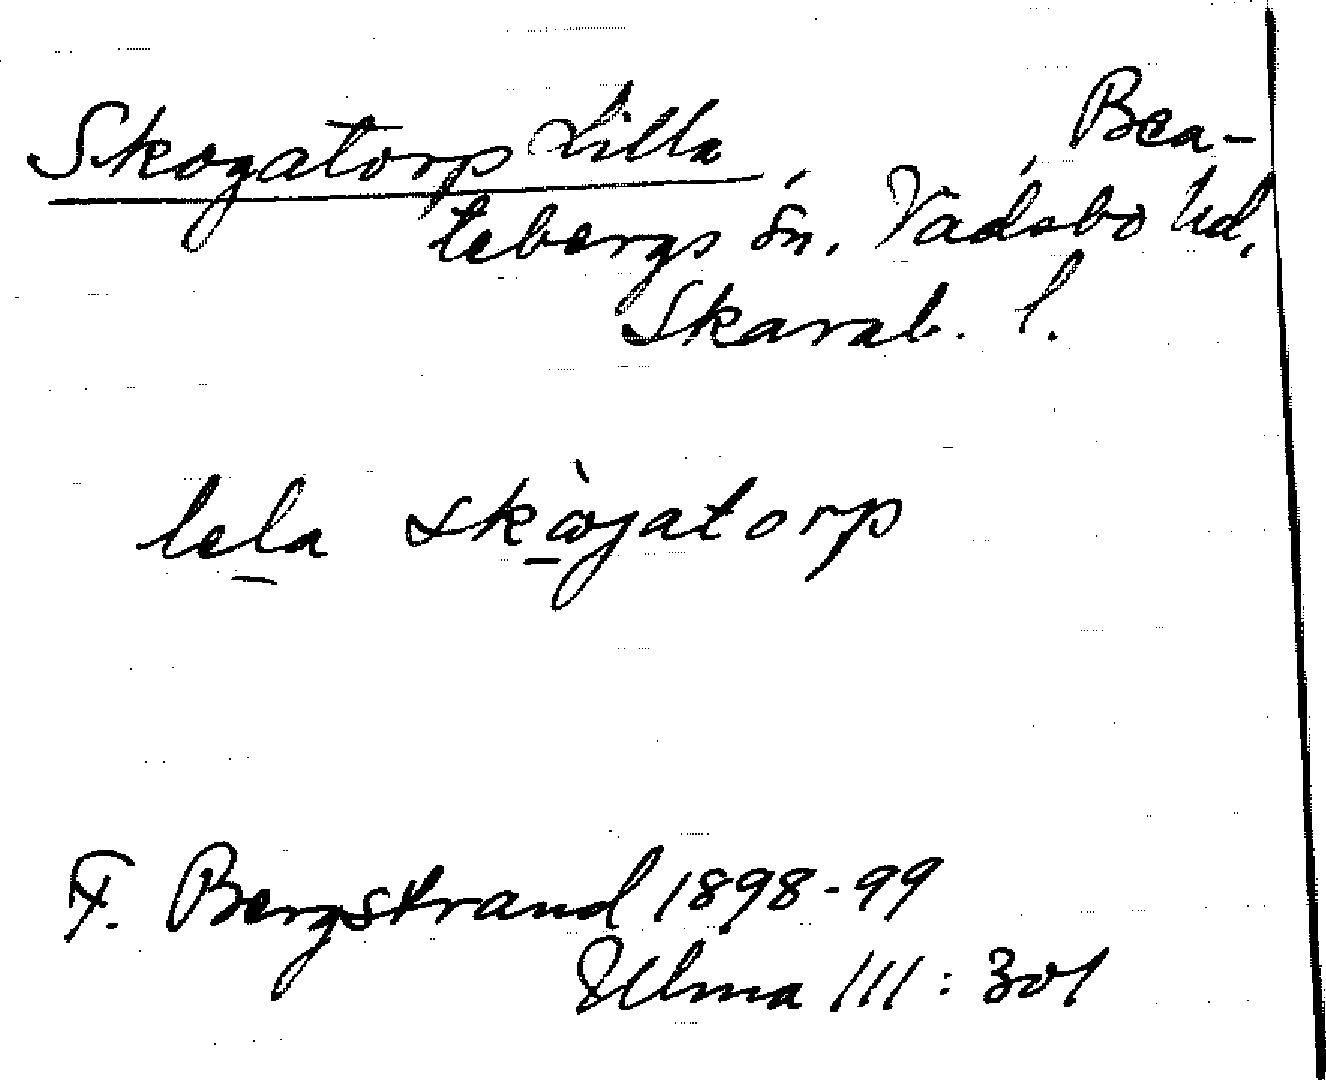 Skogatorp Lilla, Bea-
tebergs sn. Vadsbo hd,
Skarab. l.
lela skòg̀atorp
F. Bergstrand 1898-99
Ulma 111:301